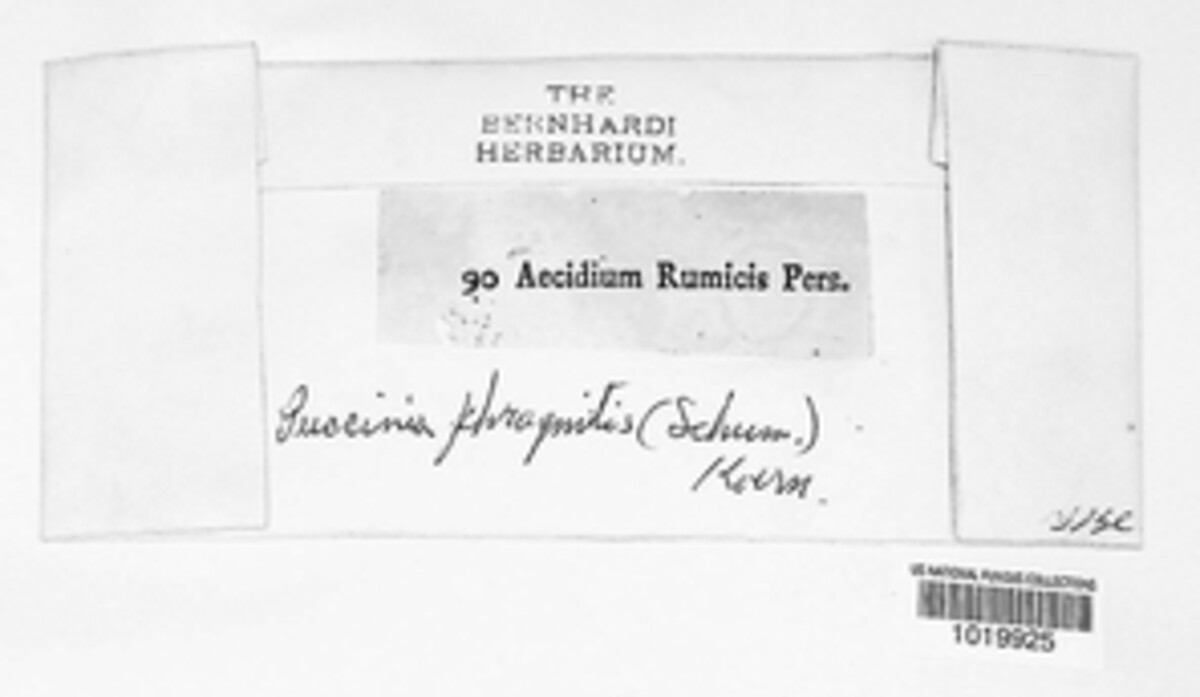 THE
BERNHARDI
HERBARIUM.
90 Aecidium Rumicis Pers.
Puccinia phragmitis (Schum.)
Koern.
US NATIONAL FUNGUS COLLECTIONS
1019925